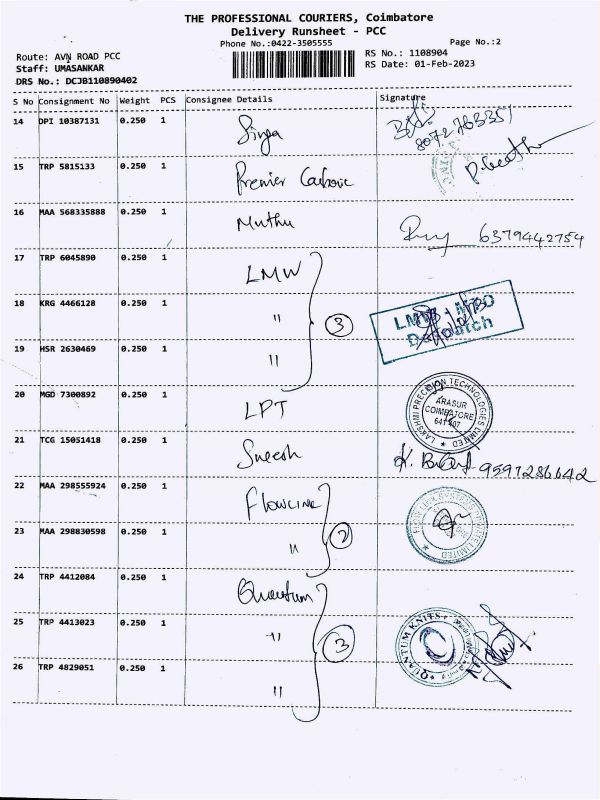 THE PROFESSIONAL COURIERS, Coimbatore
Delivery Runsheet - PCC
Phone No.:0422-3505555
Page No.:2
Route: AVN ROAD PCC
Staff: UMASANKAR
DRS No.: DCJB110890402
RS No.: 1108904
RS Date: 01-Feb-2023
S No Consignment No Weight PCS Consignee Details Signature
14 DPI 10387131 0.250 1
8072763351
15 TRP 5815133 0.250 1 Premier
16 MAA 568335888 0.250 1 Muthu 6379442754
17 TRP 6045890 0.250 1 LMW
18 KRG 4466128 0.250 1 " 3 Despatch
19 HSR 2630469 0.250 1 "
20 MGD 7300892 0.250 1 LPT LAKSHMI PRECISION TECHNOLOGIES LIMITED ARASUR COIMBATORE
21 TCG 15051418 0.250 1 9597286642
22 MAA 298555924 0.250 1
23 MAA 298830598 0.250 1 " 2
24 TRP 4412084 0.250 1 Quantum
25 TRP 4413023 0.250 1 " 3 QUANTUM KNITS
26 TRP 4829051 0.250 1 "